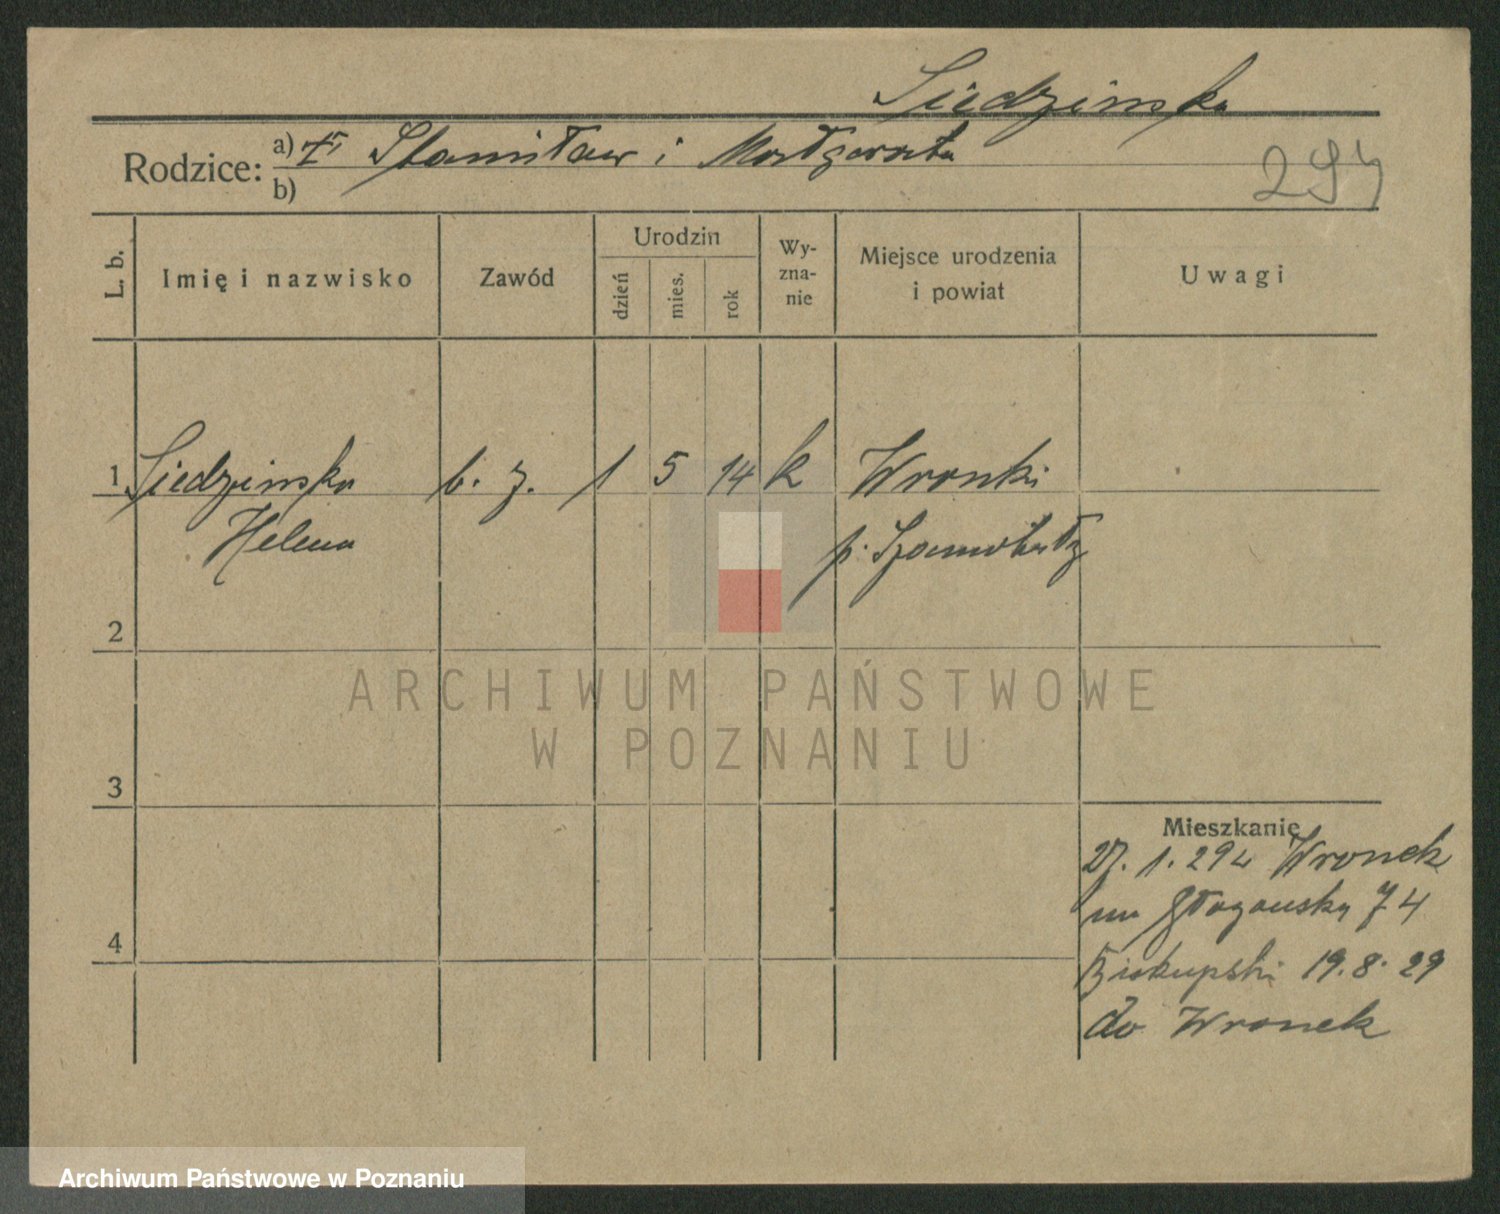 Siedzinska
Rodzice: a) Stanisław i Małgorzata
b)
294
L. b. Imię i nazwisko Zawód Urodzin dzień mies. rok Wy-zna-nie Miejsce urodzenia i powiat Uwagi
1 Siedzinska b. z. 1 5 14 k Wronki
Helena p. Szamotuły
2
3
4
Mieszkanie
27. 1. 29 z Wronek
na Głogowską 74
Biskupski 19. 8. 29
do Wronek
ARCHIWUM PAŃSTWOWE
W POZNANIU
Archiwum Państwowe w Poznaniu